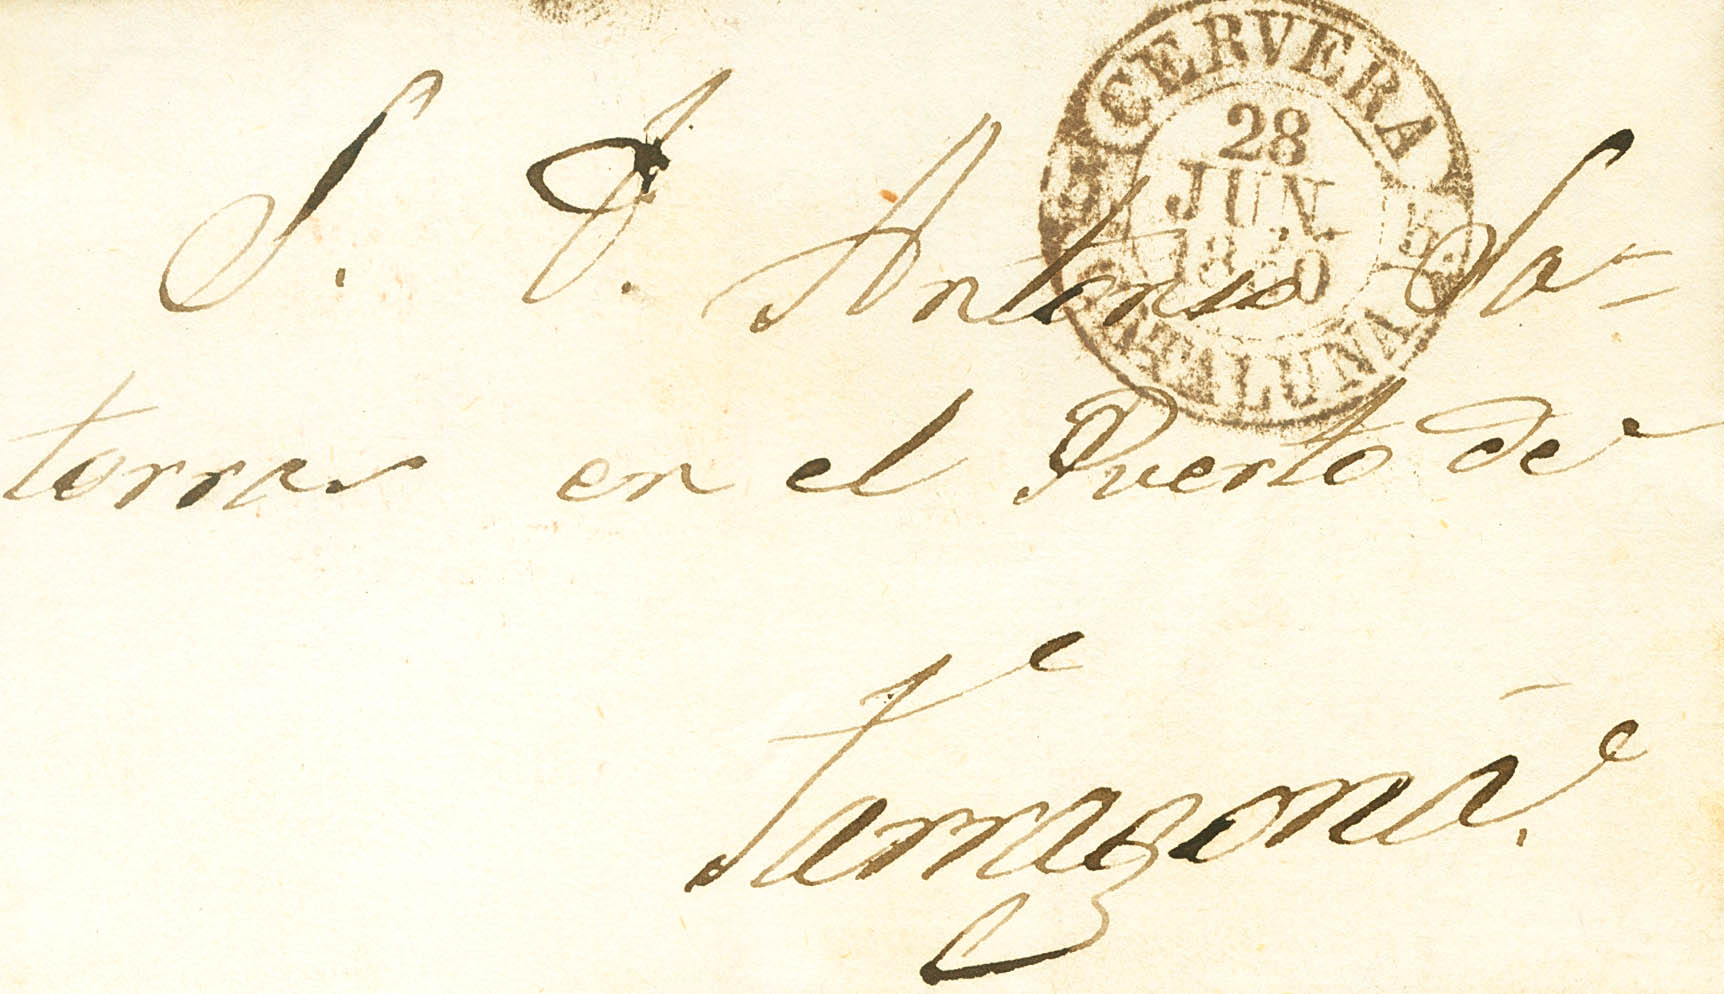 CERVERA
28
JUN.
CATALUNA
S. D. Antonio Sa=
torras en el Puerto de
Tarragona.